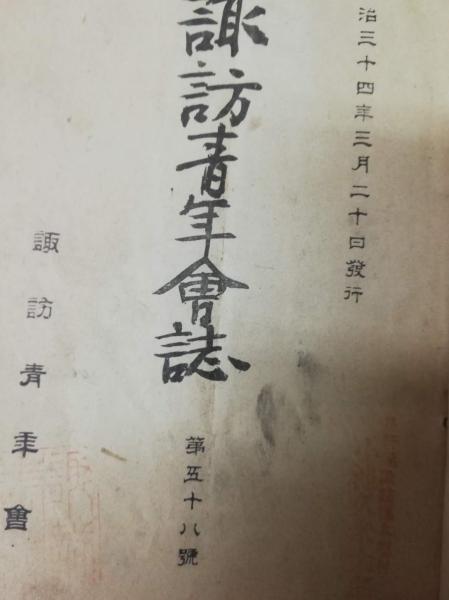 治三十四年三月二十日發行
諏訪青年會誌
第五十八號
諏訪青年會